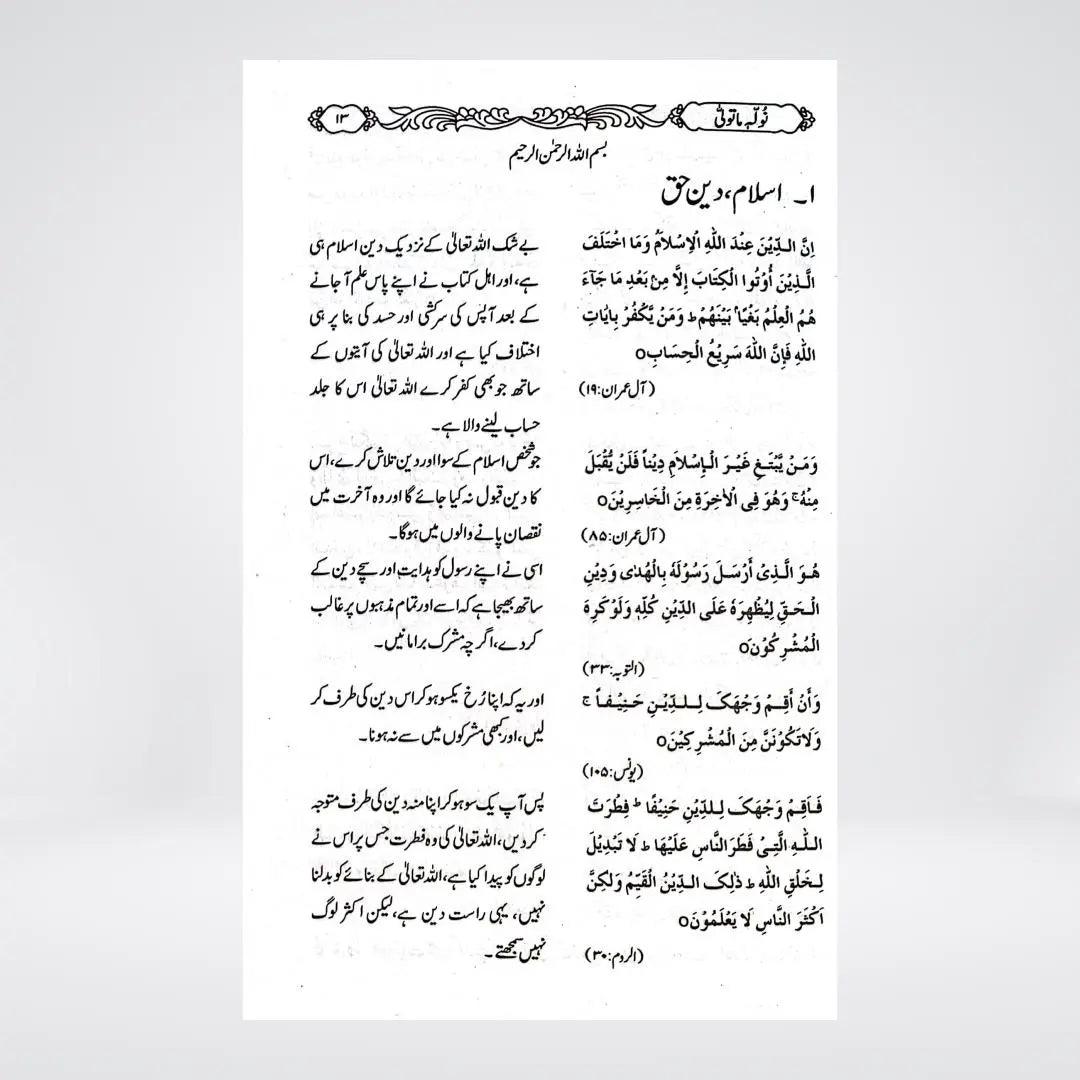 نُولّہٖ ماتولّٰی
۱۳
بسم اللہ الرحمٰن الرحیم
۱۔ اسلام، دین حق
اِنَّ الدِّیْنَ عِنْدَ اللّٰہِ الْاِسْلَامُ وَمَا اخْتَلَفَ
الَّذِیْنَ أُوْتُوا الْکِتَابَ إِلَّا مِنْ بَعْدِ مَا جَآءَ
ھُمُ الْعِلْمُ بَغْیًا بَیْنَھُمْ ط وَمَنْ یَّکْفُرْ بِاٰیَاتِ
اللّٰہِ فَإِنَّ اللّٰہَ سَرِیْعُ الْحِسَابِo
(آل عمران:۱۹)
بے شک اللہ تعالیٰ کے نزدیک دین اسلام ہی
ہے، اور اہل کتاب نے اپنے پاس علم آ جانے
کے بعد آپس کی سرکشی اور حسد کی بنا پر ہی
اختلاف کیا ہے اور اللہ تعالیٰ کی آیتوں کے
ساتھ جو بھی کفر کرے اللہ تعالیٰ اس کا جلد
حساب لینے والا ہے۔
وَمَنْ یَّبْتَغِ غَیْرَ الْإِسْلَامِ دِیْناً فَلَنْ یُّقْبَلَ
مِنْہُ ۚ وَھُوَ فِی الْاٰخِرَۃِ مِنَ الْخَاسِرِیْنَo
(آل عمران:۸۵)
جو شخص اسلام کے سوا اور دین تلاش کرے، اس
کا دین قبول نہ کیا جائے گا اور وہ آخرت میں
نقصان پانے والوں میں ہوگا۔
ھُوَ الَّذِیْ أَرْسَلَ رَسُوْلَہٗ بِالْھُدٰی وَدِیْنِ
الْحَقِّ لِیُظْھِرَہٗ عَلَی الدِّیْنِ کُلِّہٖ وَلَوْ کَرِہَ
الْمُشْرِکُوْنَo
(التوبہ:۳۳)
اسی نے اپنے رسول کو ہدایت اور سچے دین کے
ساتھ بھیجا ہے کہ اسے اور تمام مذہبوں پر غالب
کر دے، اگرچہ مشرک برا مانیں۔
وَأَنْ أَقِمْ وَجْھَکَ لِلدِّیْنِ حَنِیْفاً ۚ
وَلَا تَکُوْنَنَّ مِنَ الْمُشْرِکِیْنَo
(یونس:۱۰۵)
اور یہ کہ اپنا رُخ یکسو ہو کر اس دین کی طرف کر
لیں، اور کبھی مشرکوں میں سے نہ ہونا۔
فَاَقِمْ وَجْھَکَ لِلدِّیْنِ حَنِیْفًا ط فِطْرَتَ
اللّٰہِ الَّتِیْ فَطَرَ النَّاسِ عَلَیْھَا ط لَا تَبْدِیْلَ
لِخَلْقِ اللّٰہِ ط ذٰلِکَ الدِّیْنُ الْقَیِّمُ وَلٰکِنَّ
اَکْثَرَ النَّاسِ لَا یَعْلَمُوْنَo
(الروم:۳۰)
پس آپ یک سو ہو کر اپنا منہ دین کی طرف متوجہ
کر دیں، اللہ تعالیٰ کی وہ فطرت جس پر اس نے
لوگوں کو پیدا کیا ہے، اللہ تعالیٰ کے بنائے کو بدلنا
نہیں، یہی راست دین ہے، لیکن اکثر لوگ
نہیں سمجھتے۔